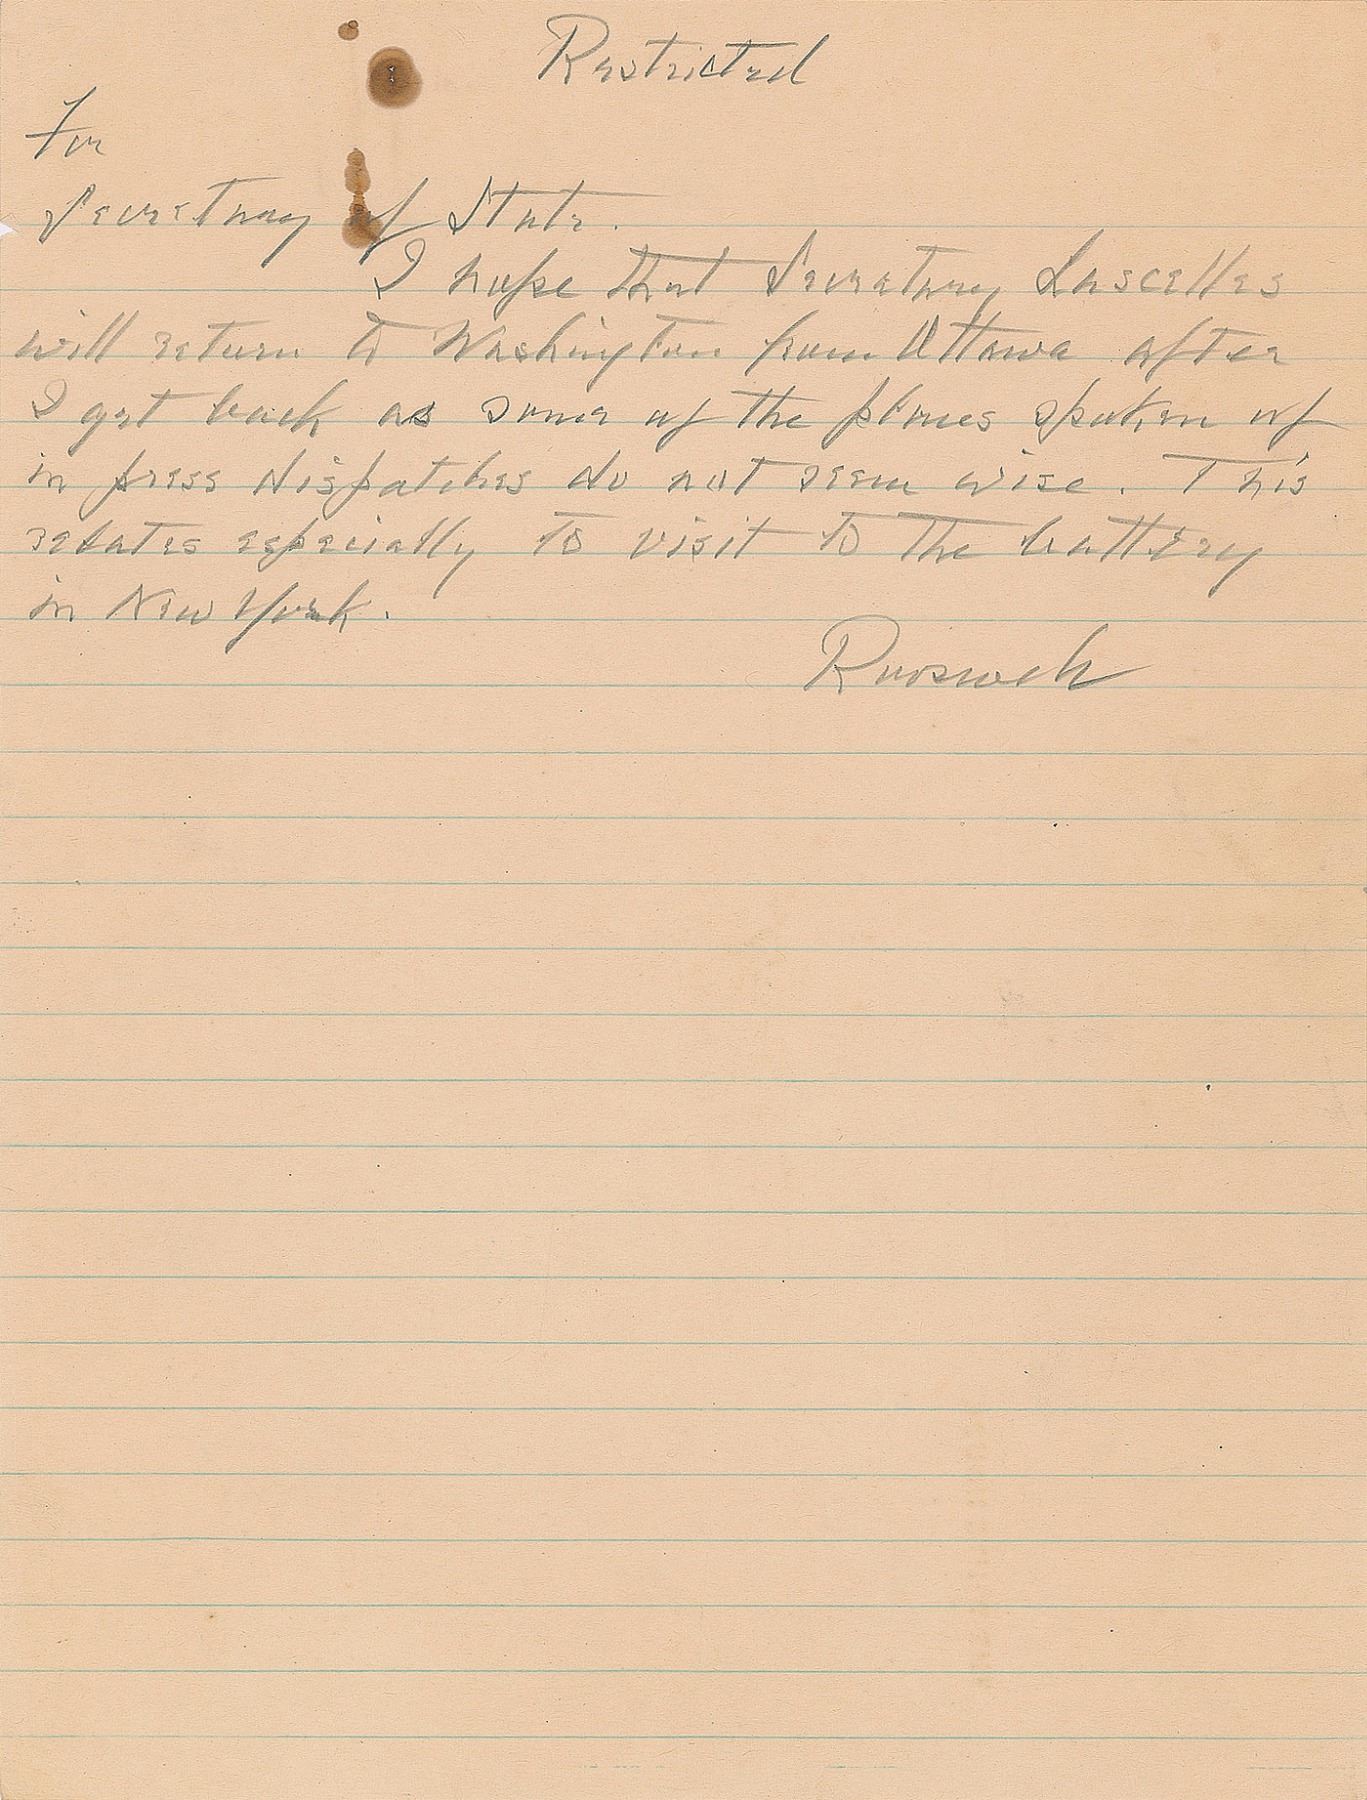 Restricted
For
Secretary of State.
I hope that Secretary Lascelles
will return to Washington from Ottawa after
I get back as some of the plans spoken of
in press dispatches do not seem wise. This
relates especially to visit to the battery
in New York.
Roosevelt